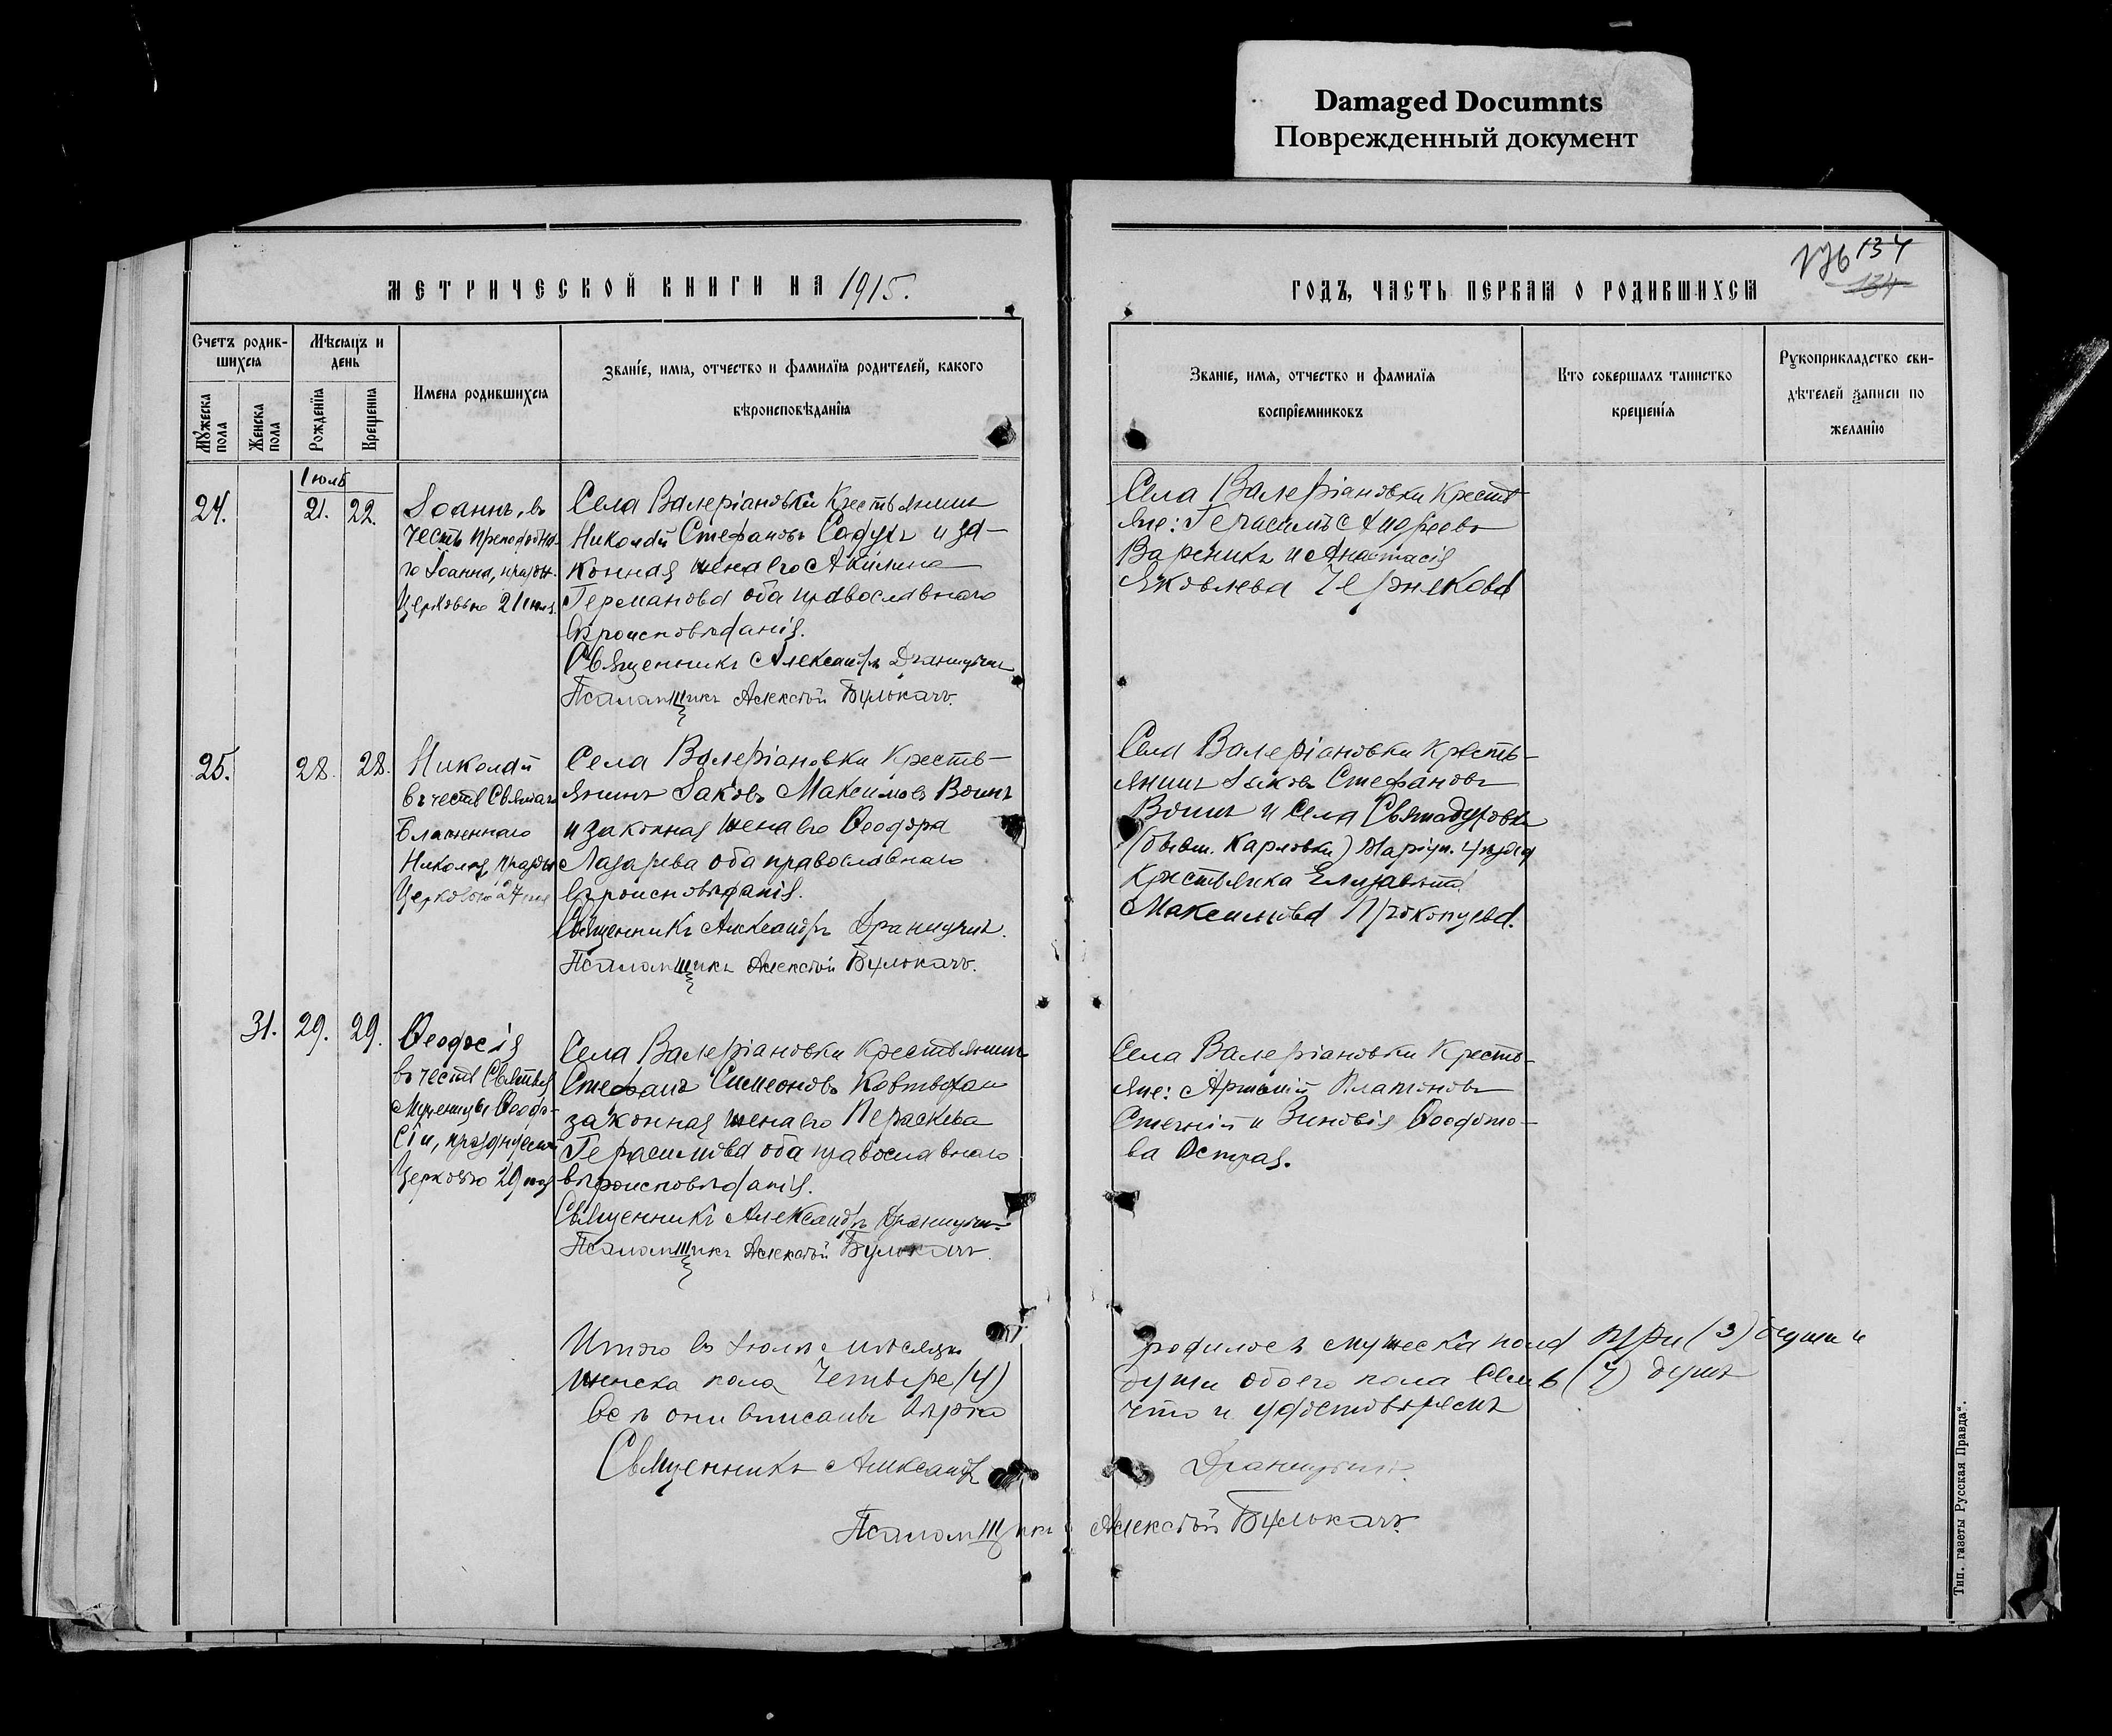 Damaged Documnts
Поврежденный документ
МЕТРИЧЕСКОЙ КНИГИ НА 1915.
Счетъ родив-
шихся
Мѣсяцъ и
день
Мужеска
пола
Женска
пола
Рожденія
Крещенія
Имена родившихся
Званіе, имя, отчество и фамилія родителей, какого
вѣроисповѣданія
Іюль
24.
21.
22.
Іоаннъ, въ
честь преподобна-
го Іоанна, праздн.
Церковью 21 іюля.
Села Валеріановки Крестьянинъ
Николай Стефановъ и за-
конная жена его Акилина
Германова оба православнаго
вѣроисповѣданія.
Священникъ Александръ
Псаломщикъ Алексѣй Булькачъ.
25.
28.
28.
Николай
въ честь Святаго
Блаженнаго
Николая, праздн
Церковью 27 іюля
Села Валеріановки Кресть-
янинъ Іаковъ Максимовъ Воинъ
и законная жена его Ѳеодора
Лазарева оба православнаго
вѣроисповѣданія.
Священникъ Александръ
Псаломщикъ Алексѣй Булькачъ.
31.
29.
29.
Ѳеодосія
въ честь Святыя
Мученицы Ѳеодо-
сіи, празднуемой
Церковью 29 іюля
Села Валеріановки Крестьянинъ
Стефанъ Симеоновъ
законная жена его Параскева
Герасимова оба православнаго
вѣроисповѣданія.
Священникъ Александръ
Псаломщикъ Алексѣй Булькачъ.
Итого въ Іюлѣ мѣсяцѣ
женска пола Четыре (4)
Всѣ они вписаны вѣрно
Священникъ Александръ
Псаломщикъ
176 134
134
ГОДЪ, ЧАСТЬ ПЕРВАЯ О РОДИВШИХСЯ
Званіе, имя, отчество и фамилія
воспріемниковъ
Кто совершалъ таинство
крещенія
Рукоприкладство сви-
дѣтелей записи по
желанію
Села Валеріановки Кресть-
яне: Герасимъ Андреевъ
Вареникъ и Анастасія
Яковлева Чернякова
Села Валеріановки Кресть-
янинъ Іаковъ Стефановъ
Воинъ и Села
(бывш. Карловки) Маріуп. уѣзда
Крестьянка Елизавета
Максимова Прокопцева.
Села Валеріановки Кресть-
яне: Артемій Платоновъ
и Зиновія Ѳеодото-
ва Острая.
родилось мужеска пола три (3) души и
души обоего пола Семь (7) душъ
что и удостовѣряемъ
Алексѣй Булькачъ.
Тип. газеты Русская Правда".